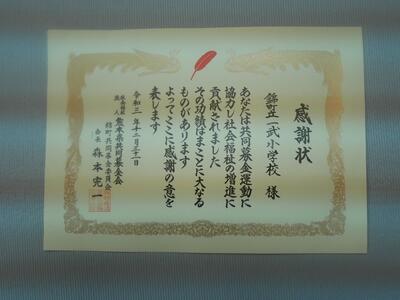 感謝状
錦町立一武小学校 様
あなたは共同募金運動に
協力し社会福祉の増進に
貢献されました
その功績はまことに大なる
ものがあります
よってここに感謝の意を
表します
令和三年十二月三十一日
社会福祉法人 熊本県共同募金会
錦町共同募金委員会
会長 森本完一